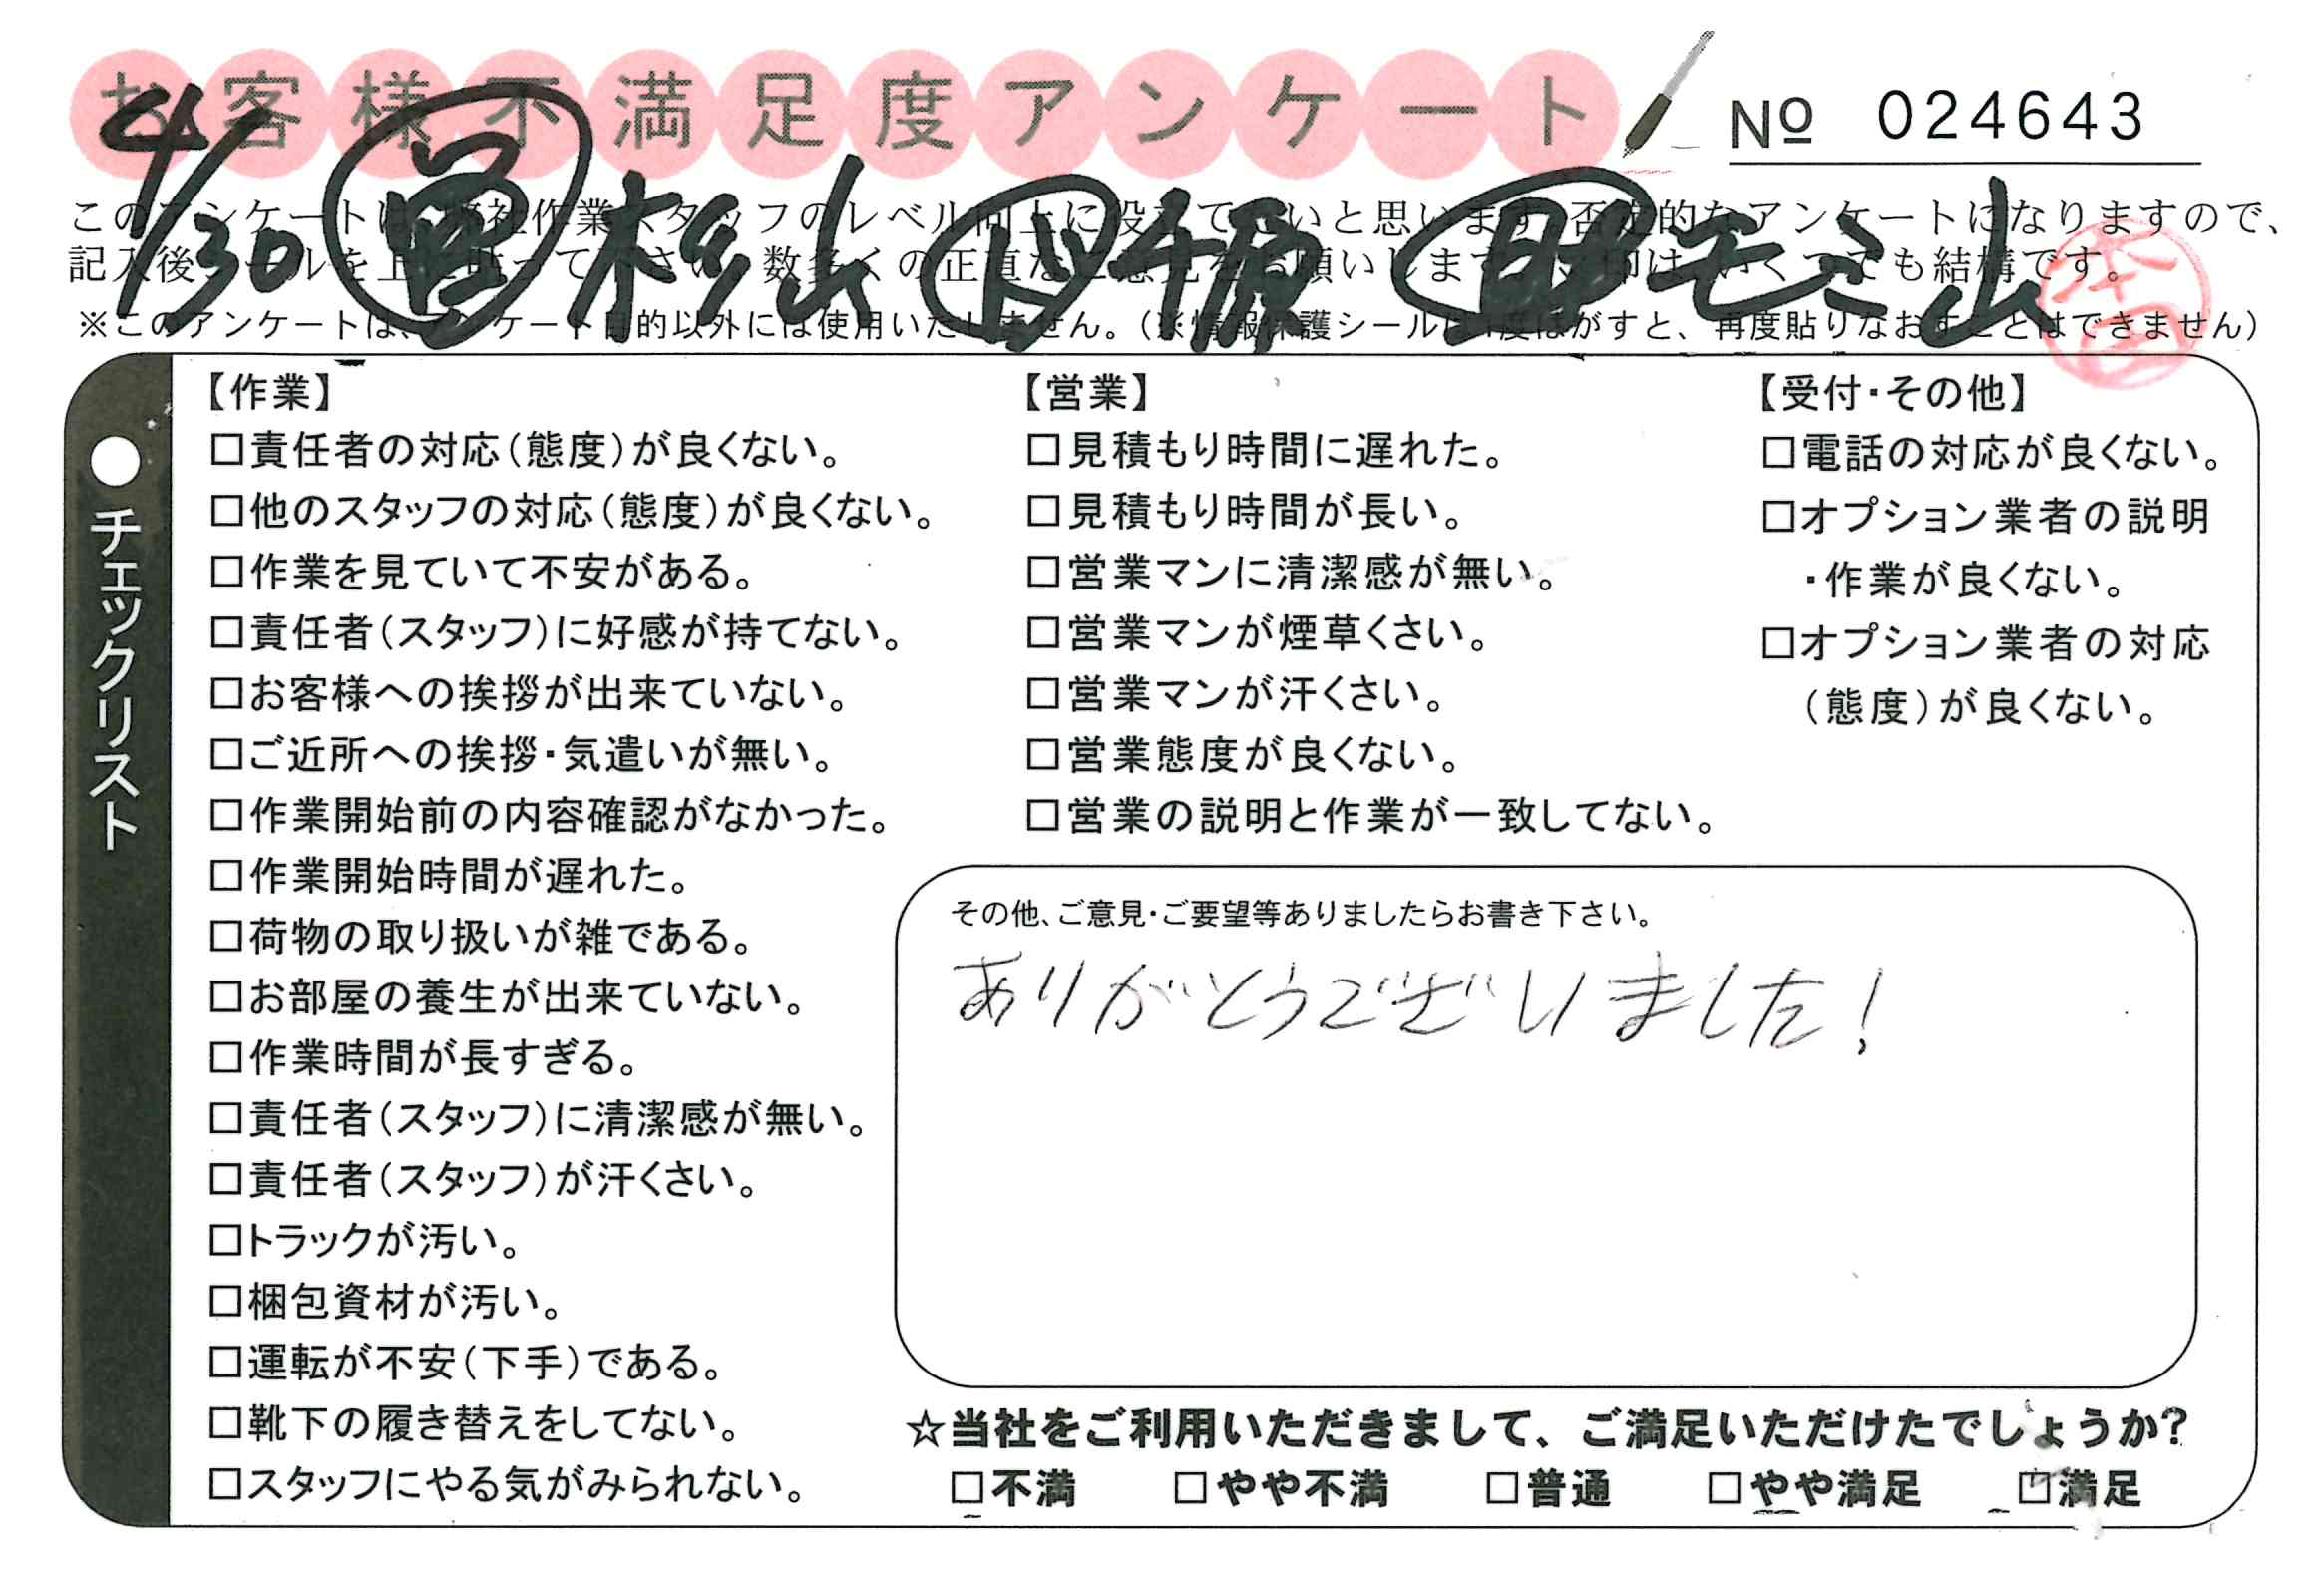 お客様不満足度アンケート
№ 024643
4/30 杉山
このアンケートは、弊社作業スタッフのレベル向上に役立てたいと思います。否定的なアンケートになりますので、
記入後シールを上に貼って下さい。数多くの正直なご意見をお願いします。いくつでも結構です。
※このアンケートは、アンケート目的以外には使用いたしません。(※情報保護シールは1度はがすと、再度貼りなおすことはできません)
本田
●チェックリスト
【作業】
□責任者の対応(態度)が良くない。
□他のスタッフの対応(態度)が良くない。
□作業を見ていて不安がある。
□責任者(スタッフ)に好感が持てない。
□お客様への挨拶が出来ていない。
□ご近所への挨拶・気遣いが無い。
□作業開始前の内容確認がなかった。
□作業開始時間が遅れた。
□荷物の取り扱いが雑である。
□お部屋の養生が出来ていない。
□作業時間が長すぎる。
□責任者(スタッフ)に清潔感が無い。
□責任者(スタッフ)が汗くさい。
□トラックが汚い。
□梱包資材が汚い。
□運転が不安(下手)である。
□靴下の履き替えをしてない。
□スタッフにやる気がみられない。
【営業】
□見積もり時間に遅れた。
□見積もり時間が長い。
□営業マンに清潔感が無い。
□営業マンが煙草くさい。
□営業マンが汗くさい。
□営業態度が良くない。
□営業の説明と作業が一致してない。
【受付・その他】
□電話の対応が良くない。
□オプション業者の説明
・作業が良くない。
□オプション業者の対応
(態度)が良くない。
その他、ご意見・ご要望等ありましたらお書き下さい。
ありがとうございました!
☆当社をご利用いただきまして、ご満足いただけたでしょうか?
□不満 □やや不満 □普通 □やや満足 □満足